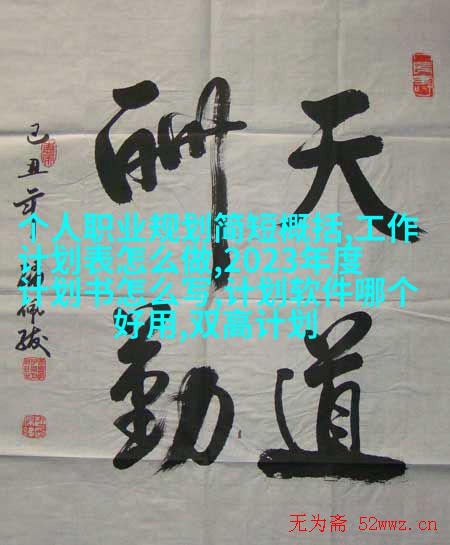 天道
酬勤
己丑
个人职业规划简短概括,工作
计划表怎么做,2023年度
计划书怎么写,计划软件哪个
好用,双高计划
无为斋 52wwz.cn